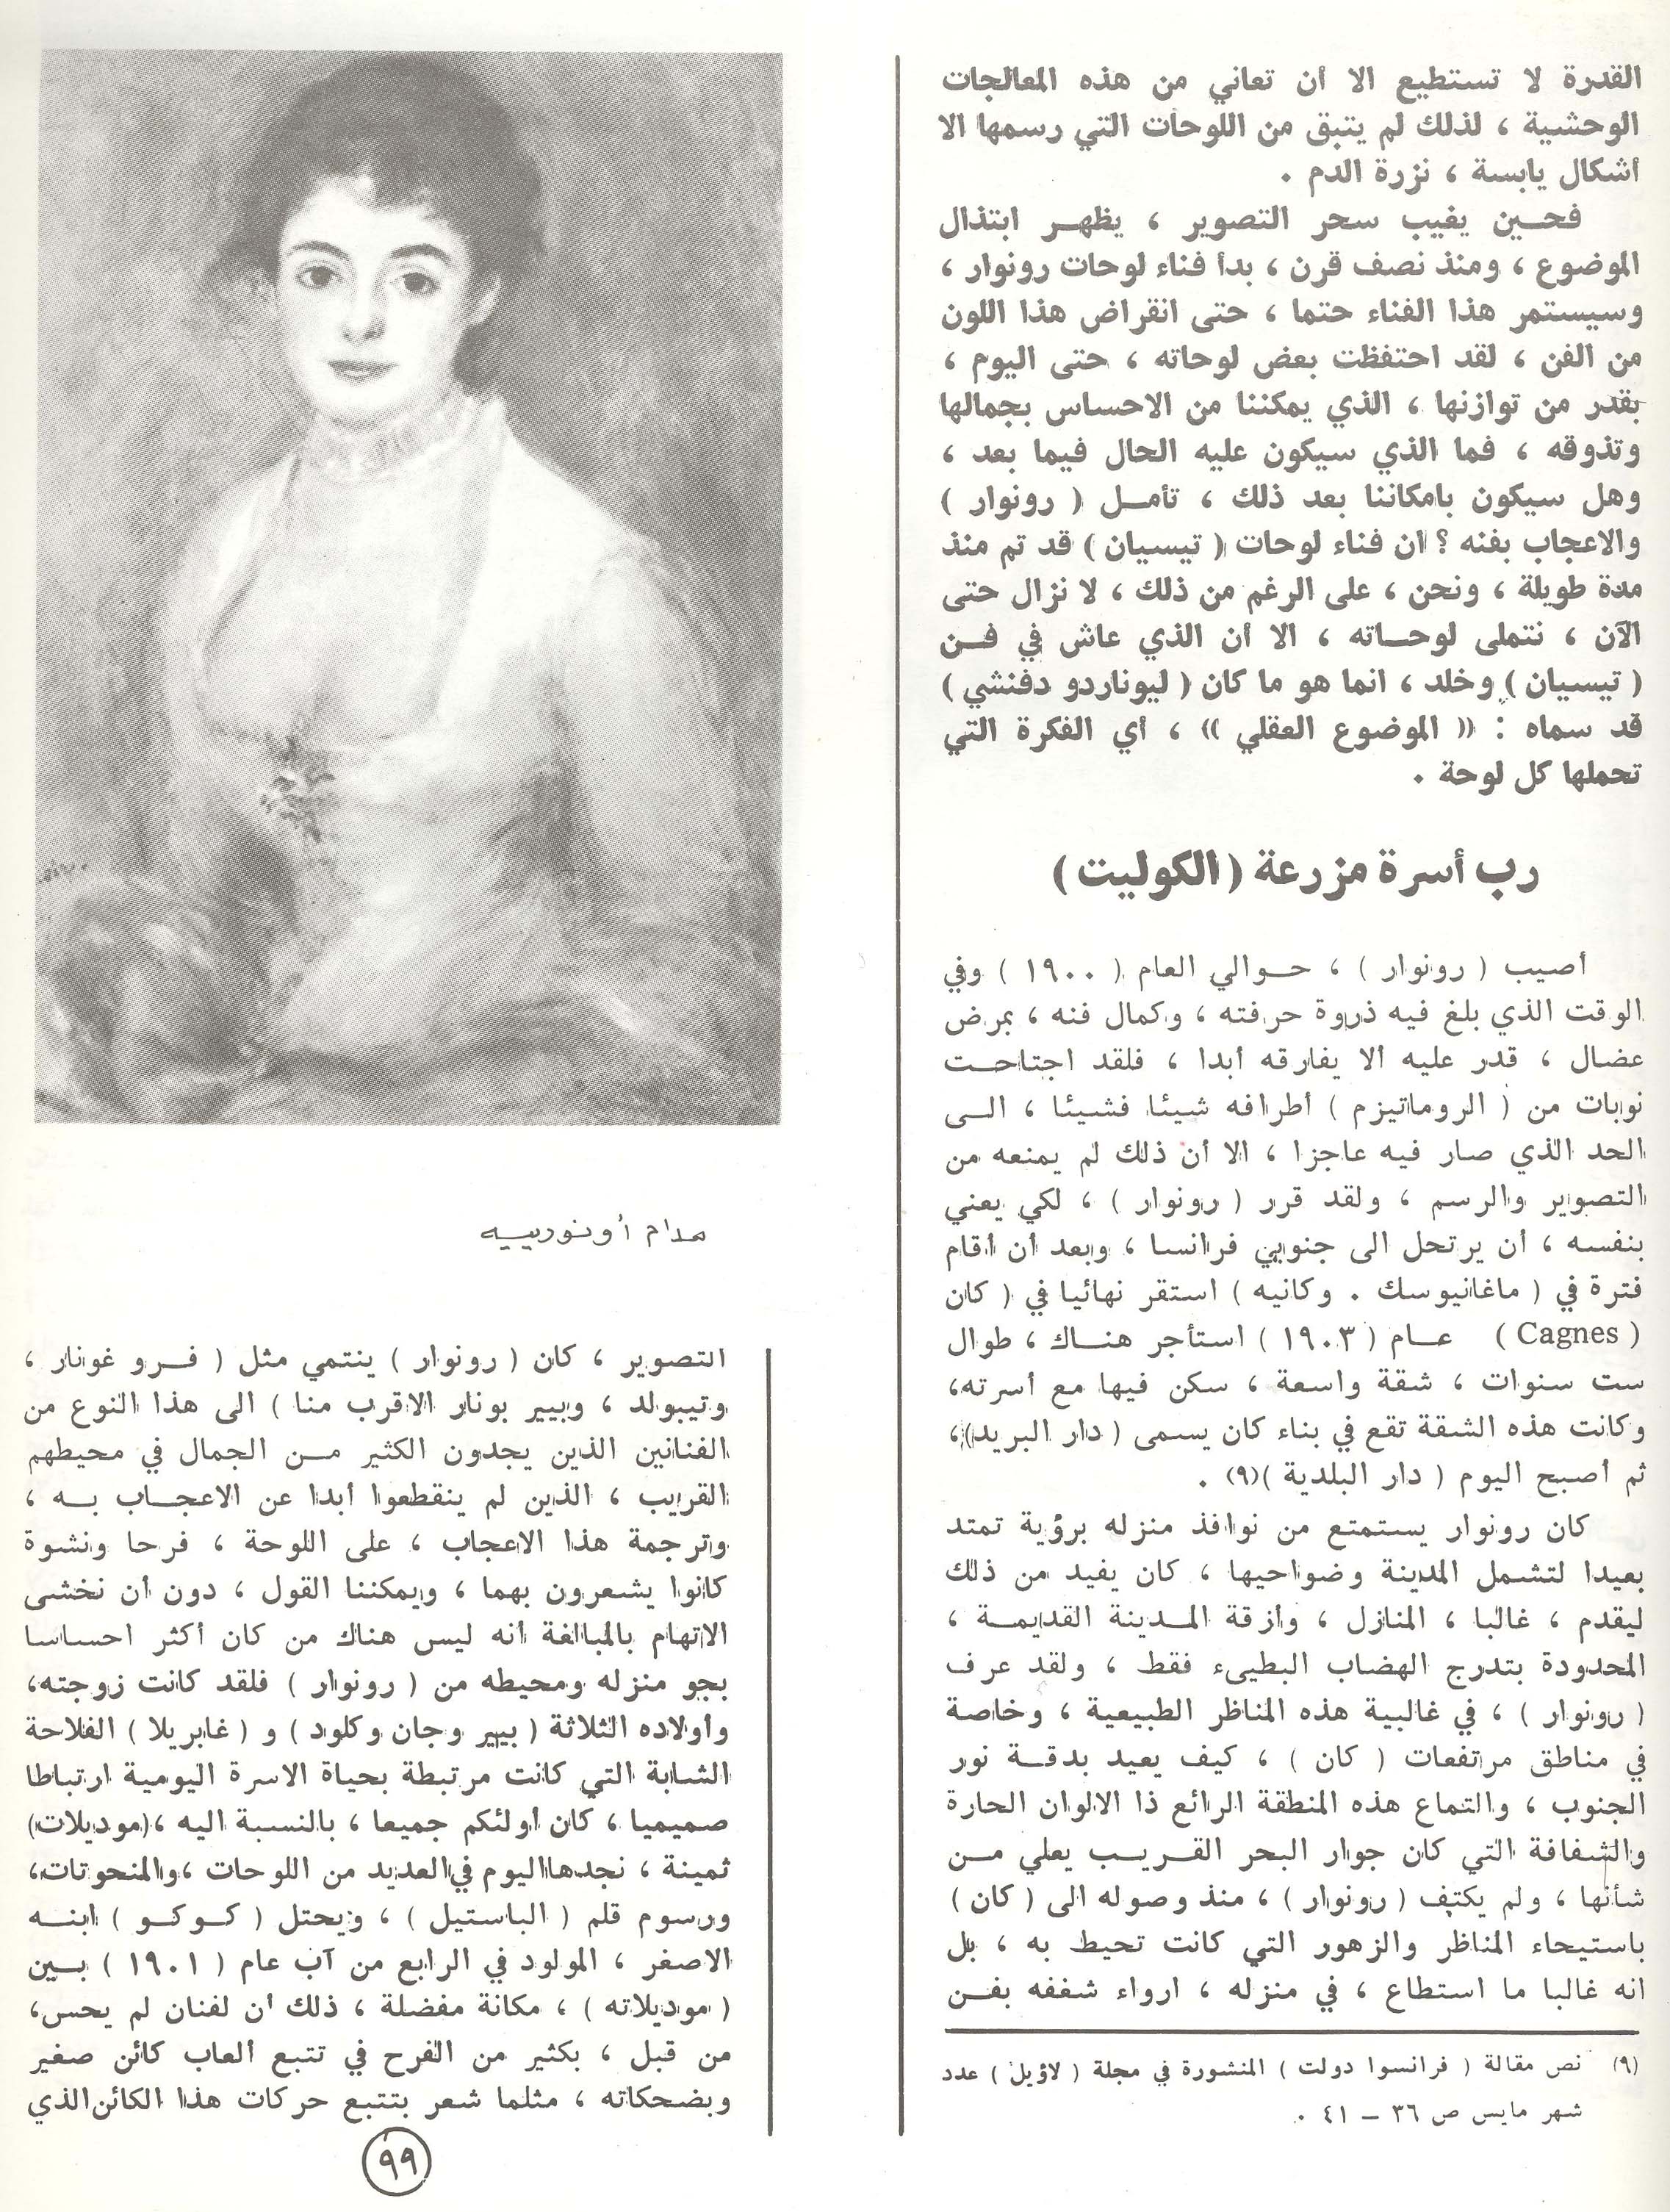 القدرة لا تستطيع الا أن تعاني من هذه المعالجات
الوحشية ، لذلك لم يتبق من اللوحات التي رسمها الا
أشكال يابسة ، نزرة الدم .
فحـين يغيب سحر التصوير ، يظهـر ابتذال
الموضوع ، ومنذ نصف قرن ، بدأ فناء لوحات رونوار ،
وسيستمر هذا الفناء حتما ، حتى انقراض هذا اللون
من الفن ، لقد احتفظت بعض لوحاته ، حتى اليوم ،
بقدر من توازنها ، الذي يمكننا من الاحساس بجمالها
وتذوقه ، فما الذي سيكون عليه الحال فيما بعد ،
وهل سيكون بامكاننا بعد ذلك ، تأمـل ( رونوار )
والاعجاب بفنه ؟ ان فناء لوحات ( تيسيان ) قد تم منذ
مدة طويلة ، ونحن ، على الرغم من ذلك ، لا نزال حتى
الآن ، نتملى لوحـاته ، الا أن الذي عاش في فـن
( تيسيان ) وخلد ، انما هو ما كان ( ليوناردو دفنشي )
قد سماه : (( الموضوع العقلي )) ، أي الفكرة التي
تحملها كل لوحة .
رب أسرة مزرعة ( الكوليت )
أصيب ( رونوار ) ، حـوالي العام ( ١٩٠٠ ) وفي
الوقت الذي بلغ فيه ذروة حرفته ، وكمال فنه ، بمرض
عضال ، قدر عليه ألا يفارقه أبدا ، فلقد اجتاحـت
نوبات من ( الروماتيزم ) أطرافه شيئا فشيئا ، الـى
الحد الذي صار فيه عاجزا ، الا أن ذلك لم يمنعه من
التصوير والرسم ، ولقد قرر ( رونوار ) ، لكي يعني
بنفسه ، أن يرتحل الى جنوبي فرانسا ، وبعد أن أقام
فترة في ( ماغانيوسك . وكانيه ) استقر نهائيا في ( كان
( Cagnes ) عـام ( ١٩٠٣ ) استأجر هنـاك ، طوال
ست سنوات ، شقة واسعة ، سكن فيها مع أسرته،
وكانت هذه الشقة تقع في بناء كان يسمى ( دار البريد)،
ثم أصبح اليوم ( دار البلدية )(٩) .
كان رونوار يستمتع من نوافذ منزله برؤية تمتد
بعيدا لتشمل المدينة وضواحيها ، كان يفيد من ذلك
ليقدم ، غالبا ، المنازل ، وأزقة المـدينة القديمـة ،
المحدودة بتدرج الهضاب البطيىء فقط ، ولقد عرف
( رونوار ) ، في غالبية هذه المناظر الطبيعية ، وخاصة
في مناطق مرتفعات ( كان ) ، كيف يعيد بدقـة نور
الجنوب ، والتماع هذه المنطقة الرائع ذا الالوان الحارة
والشفافة التي كان جوار البحر القريـب يعلي مـن
شأنها ، ولم يكتف ( رونوار ) ، منذ وصوله الى ( كان )
باستيحاء المناظر والزهور التي كانت تحيط به ، بل
انه غالبا ما استطاع ، في منزله ، ارواء شغفه بفـن
(٩) نص مقالة ( فرانسوا دولت ) المنشورة في مجلة ( لاؤيل ) عدد
شهر مايس ص ٣٦ – ٤١ .
مدام أونورييه
التصوير ، كان ( رونوار ) ينتمي مثل ( فـرو غونار ،
وتيبولد ، وبيير بونار الاقرب منا ) الى هذا النوع من
الفنانين الذين يجدون الكثير مـن الجمال في محيطهم
القريب ، الذين لم ينقطعوا أبدا عن الاعجـاب بـه ،
وترجمة هذا الاعجاب ، على اللوحة ، فرحا ونشوة
كانوا يشعرون بهما ، ويمكننا القول ، دون أن نخشى
الاتهام بالمبالغة أنه ليس هناك من كان أكثر احساسا
بجو منزله ومحيطه من ( رونوار ) فلقد كانت زوجته،
وأولاده الثلاثة ( بيير وجان وكلود ) و ( غابريلا ) الفلاحة
الشابة التي كانت مرتبطة بحياة الاسرة اليومية ارتباطا
صميميا ، كان أولئكم جميعا ، بالنسبة اليه ،(موديلات)
ثمينة ، نجدها اليوم في العديد من اللوحات ،والمنحوتات،
ورسوم قلم ( الباستيل ) ، ويحتل ( كـوكـو ) ابنـه
الاصغر ، المولود في الرابع من آب عام ( ١٩٠١ ) بـين
( موديلاته ) ، مكانة مفضلة ، ذلك أن لفنان لم يحس،
من قبل ، بكثير من الفرح في تتبع ألعاب كائن صغير
وبضحكاته ، مثلما شعر بتتبع حركات هذا الكائن الذي
٩٩